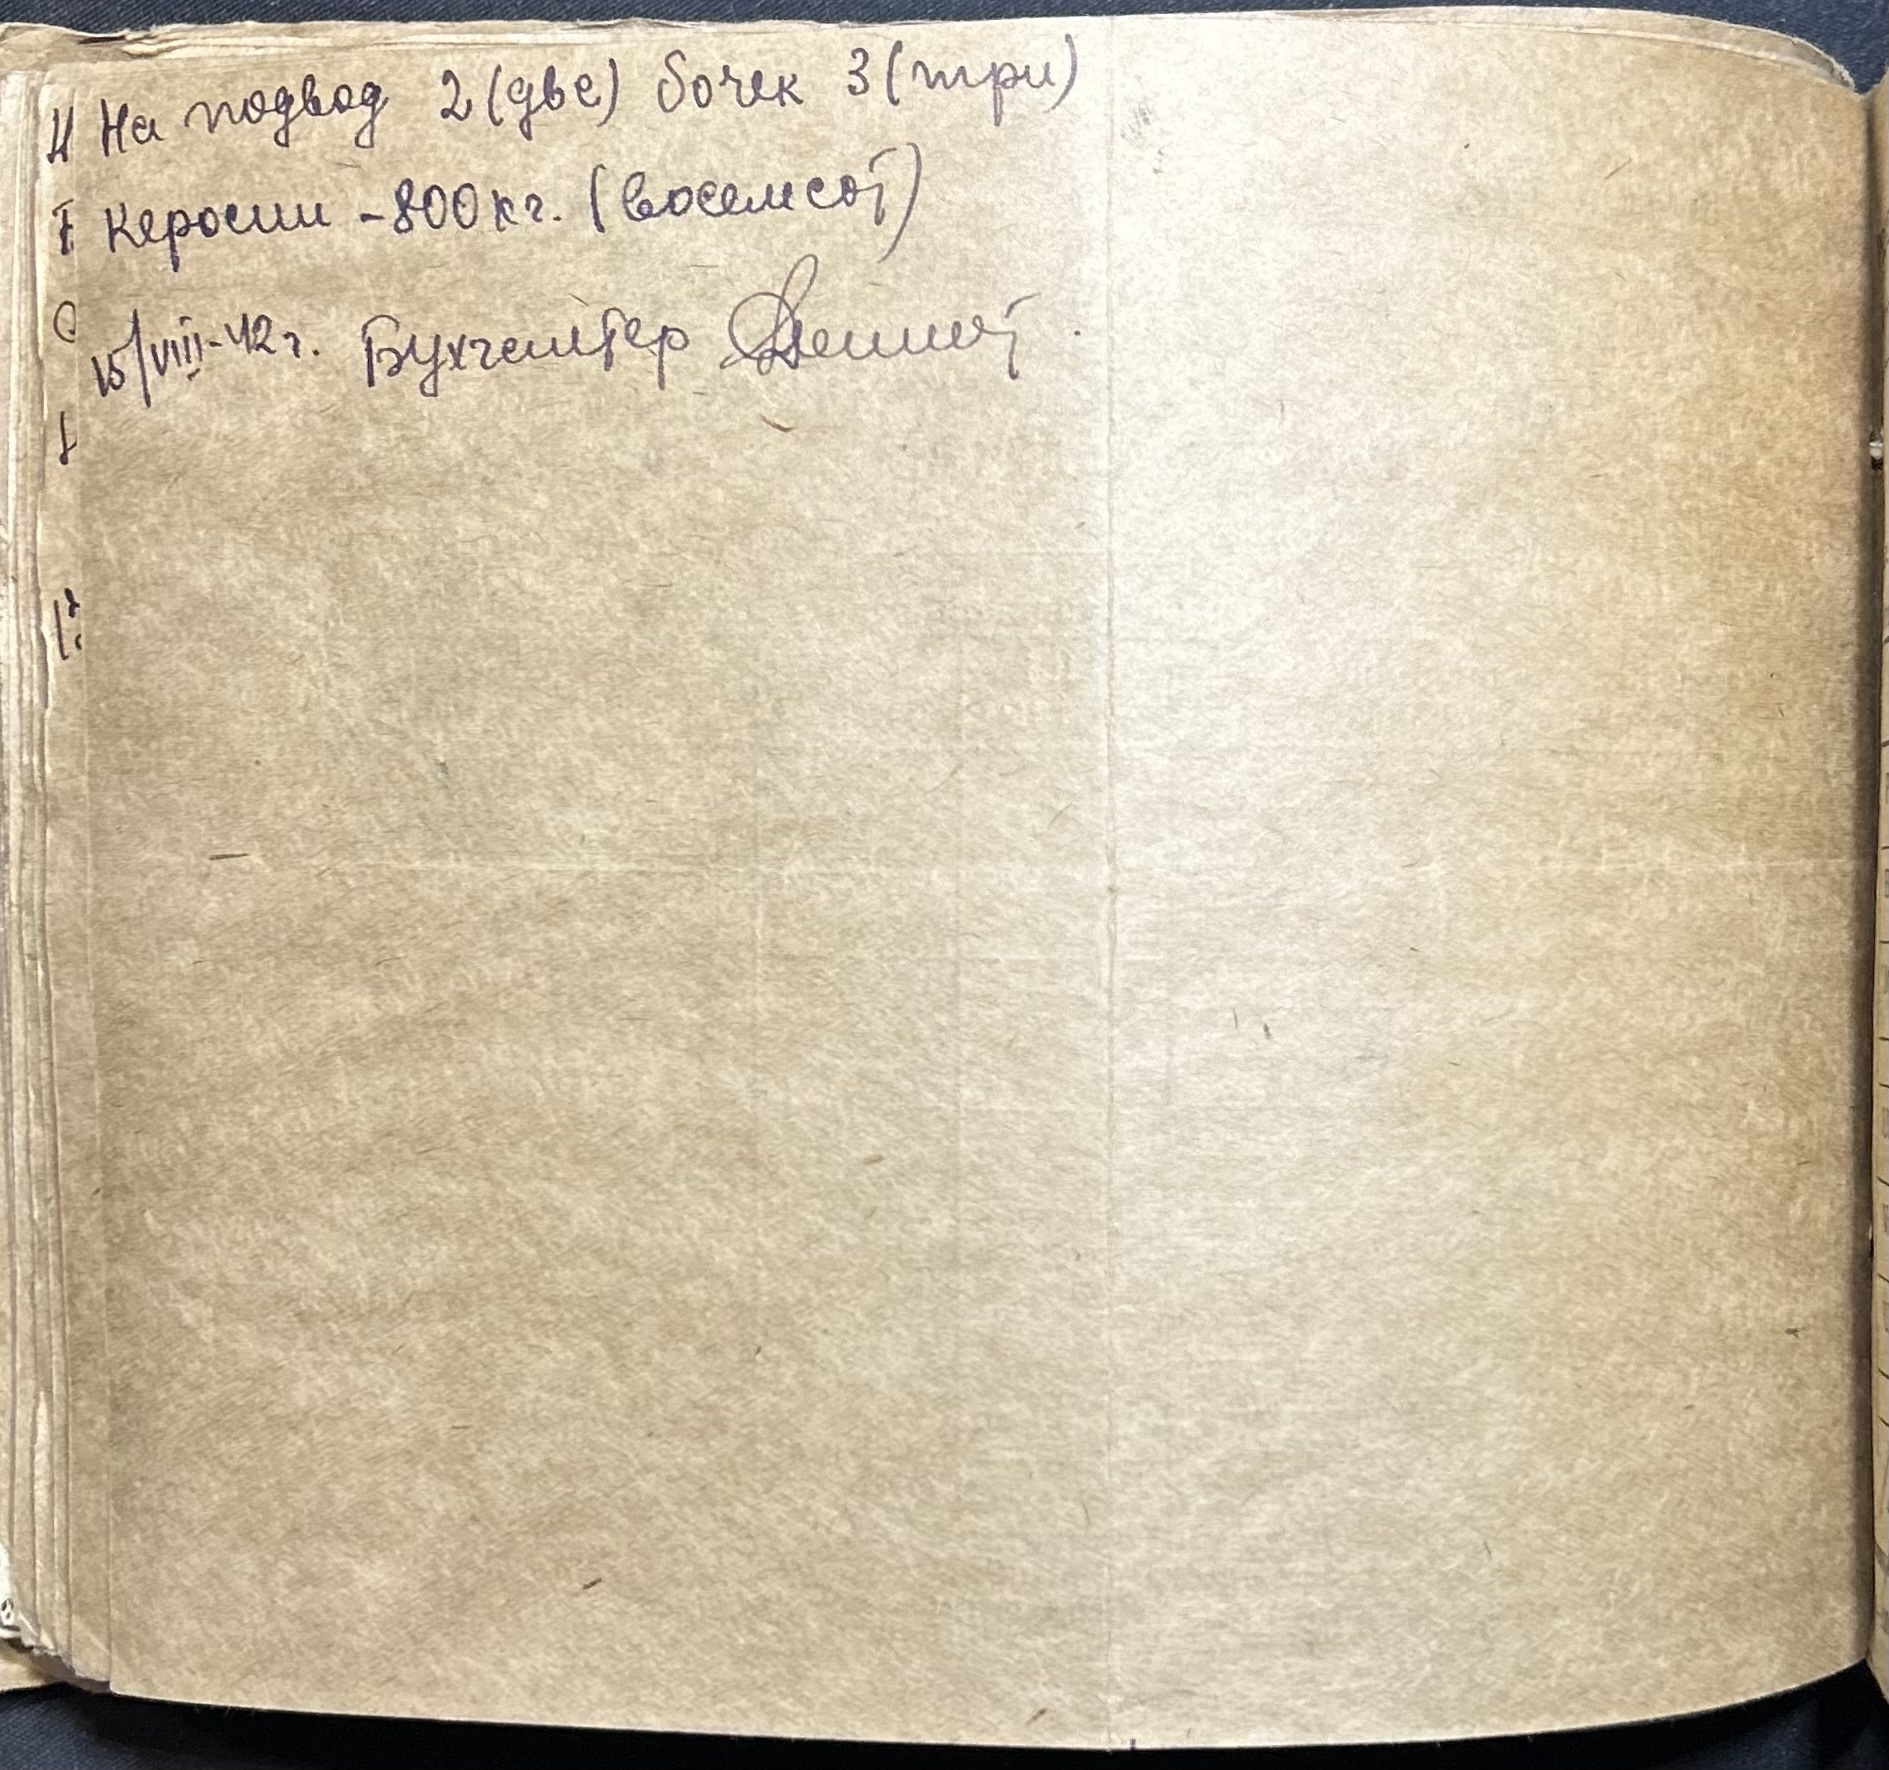 На подвод 2 (две) бочек 3 (три)
Керосин - 800 кг. (восемсот)
15/VIII-42 г. Бухгалтер